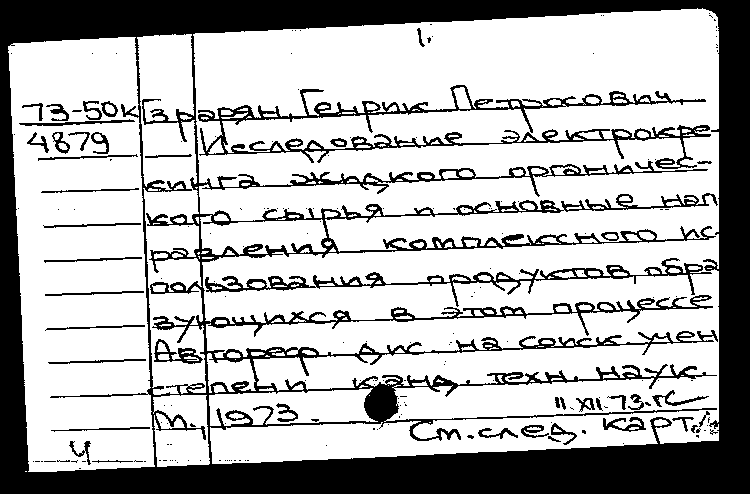 1.
73-50к Гзрарян, Генрик Петросович.
4879 Исследование электрокре-
кинга жидкого органичес-
кого сырья и основные нап
равления комплексного ис-
пользования продуктов, обра
зующихся в этом процессе
Автореф. дис. на соиск. учен
степени канд. техн. наук.
М., 1973. 11.XII.73.гс
Ч См. след. карт.